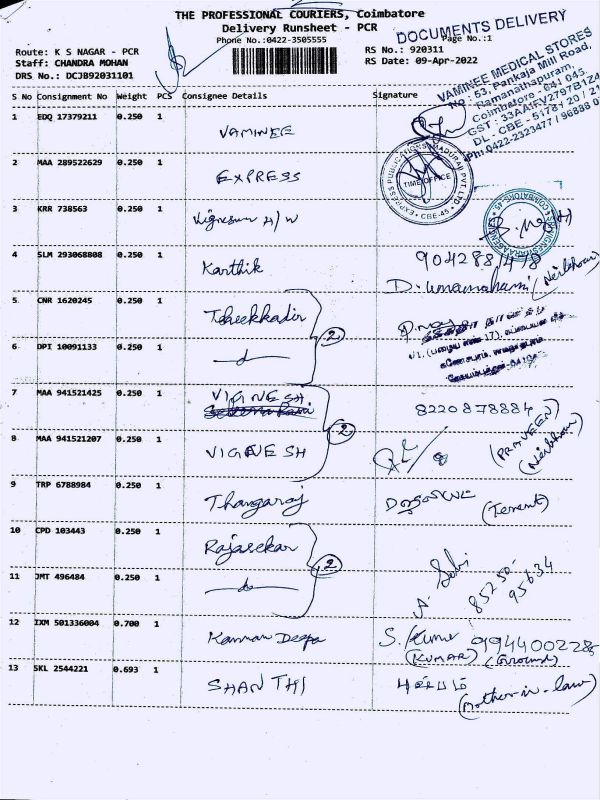 THE PROFESSIONAL COURIERS, Coimbatore
Delivery Runsheet - PCR
DOCUMENTS DELIVERY
Phone No.:0422-3505555
Page No.:1
Route: K S NAGAR - PCR
RS No.: 920311
Staff: CHANDRA MOHAN
RS Date: 09-Apr-2022
DRS No.: DCJB92031101
VAMINEE MEDICAL STORES
53, Pankaja Mill Road,
Ramanathapuram,
Coimbatore - 641 045.
GST : 33AAIFV2797B1Z4
DL - CBE - 5178 / 20 / 21
Ph: 0422-2323477 / 96888
S No Consignment No Weight PCS Consignee Details Signature
1 EDQ 17379211 0.250 1 VAMINEE
2 MAA 289522629 0.250 1 EXPRESS
EXPRESS PUBLICATIONS (MADURAI) PVT. LTD
TIME OFFICE
CBE-45
3 KRR 738563 0.250 1 Vignesun H/W
4 SLM 293068808 0.250 1 Karthik 9042881478
D. Umamaheswari (Neibhour)
5 CNR 1620245 0.250 1 Theekkadir
2
6 DPI 10091133 0.250 1
7 MAA 941521425 0.250 1 VIGNESH 8220878884
2
(PRAVEEN)
(Neibhour)
8 MAA 941521207 0.250 1 VIGNESH
9 TRP 6788984 0.250 1 Thangaraj (Tenent)
10 CPD 103443 0.250 1 Rajasekar
2
Selvi
85250-
95634
11 JMT 496484 0.250 1
12 IXM 501336004 0.700 1 Kannan Deepa S. Kumar 9944002285
(KUMAR) (Ground)
13 SKL 2544221 0.693 1 SHANTHI
(Mother-in-law)